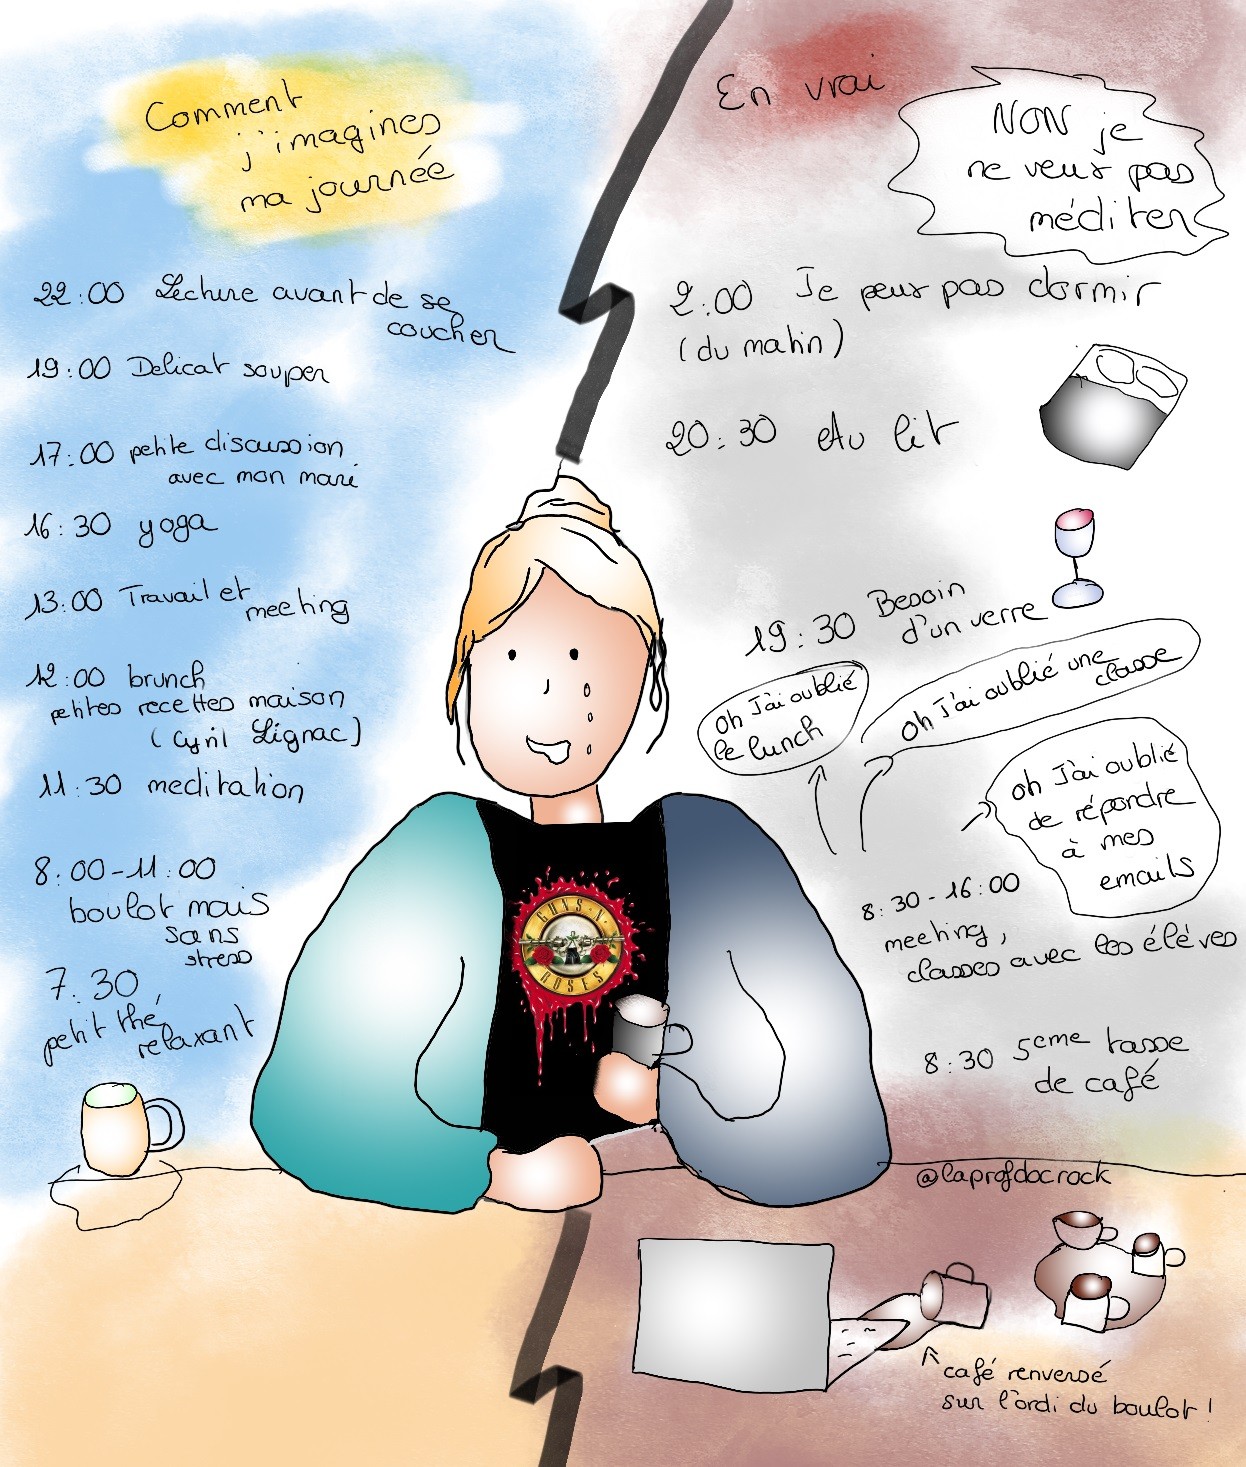 Comment
j'imagines
ma journée
22:00 Lecture avant de se
coucher
19:00 Delicat souper
17:00 petite discussion
avec mon mari
16:30 yoga
13:00 Travail et
meeting
12:00 brunch
petites recettes maison
(Cyril Lignac)
11:30 meditation
8:00-11:00
boulot mais
sans
stress
7.30
petit thé,
relaxant
En vrai
NON je
ne veux pas
méditer
2:00 Je peux pas dormir
(du matin)
20:30 Au lit
19:30 Besoin
d'un verre
Oh J'ai oublié
le lunch
Oh J'ai oublié une
classe
Oh J'ai oublié
de répondre
à mes
emails
8:30-16:00
meeting,
classes avec les élèves
8:30 5eme tasse
de café
GUNS N'
ROSES
@laprofdocrock
café renversé
sur l'ordi du boulot!